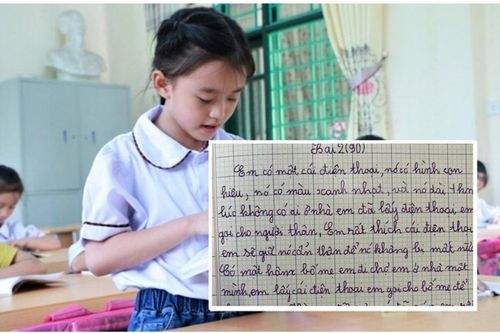 Bài 2 (90)
Em có một cái điện thoại, nó có hình con
hiệu, nó có màu xanh nhạt, và nó dài 7 hm
lúc không có ai ở nhà em đã lấy điện thoại, em
gọi cho người thân, Em rất thích cái điện thoại
em sẽ giữ nó cẩn thận để nó không bị mất nữa
Có một hôm bố mẹ em đi chợ em ở nhà một
mình, em lấy cái điện thoại em gọi cho bố mẹ để